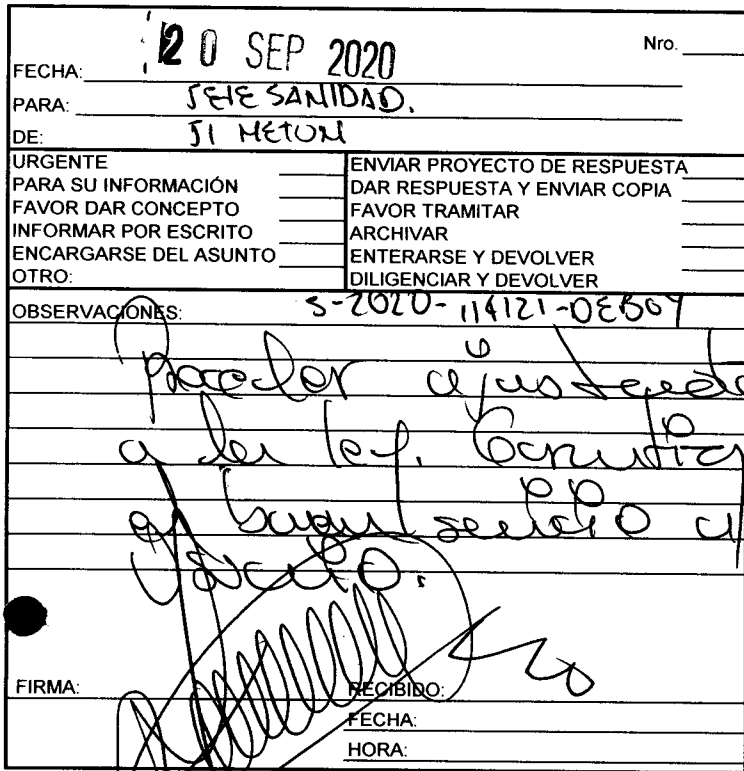 20 SEP 2020
Nro.
FECHA:
PARA: JEFE SANIDAD.
DE: JI METUN
URGENTE
PARA SU INFORMACIÓN
FAVOR DAR CONCEPTO
INFORMAR POR ESCRITO
ENCARGARSE DEL ASUNTO
OTRO:
ENVIAR PROYECTO DE RESPUESTA
DAR RESPUESTA Y ENVIAR COPIA
FAVOR TRAMITAR
ARCHIVAR
ENTERARSE Y DEVOLVER
DILIGENCIAR Y DEVOLVER
OBSERVACIONES: S-2020-114121-DEBOY
Proceder ajustado
a la ley.
servicio al
FIRMA:
RECIBIDO:
FECHA:
HORA: